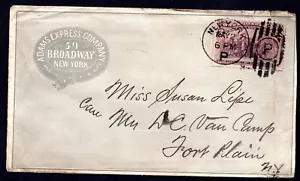 ADAMS EXPRESS COMPANY
59
BROADWAY
NEW YORK
NEW YORK
6 PM
P
Miss Susan Lipe
Care Mrs D.C. Van Camp
Fort Plain
N.Y.